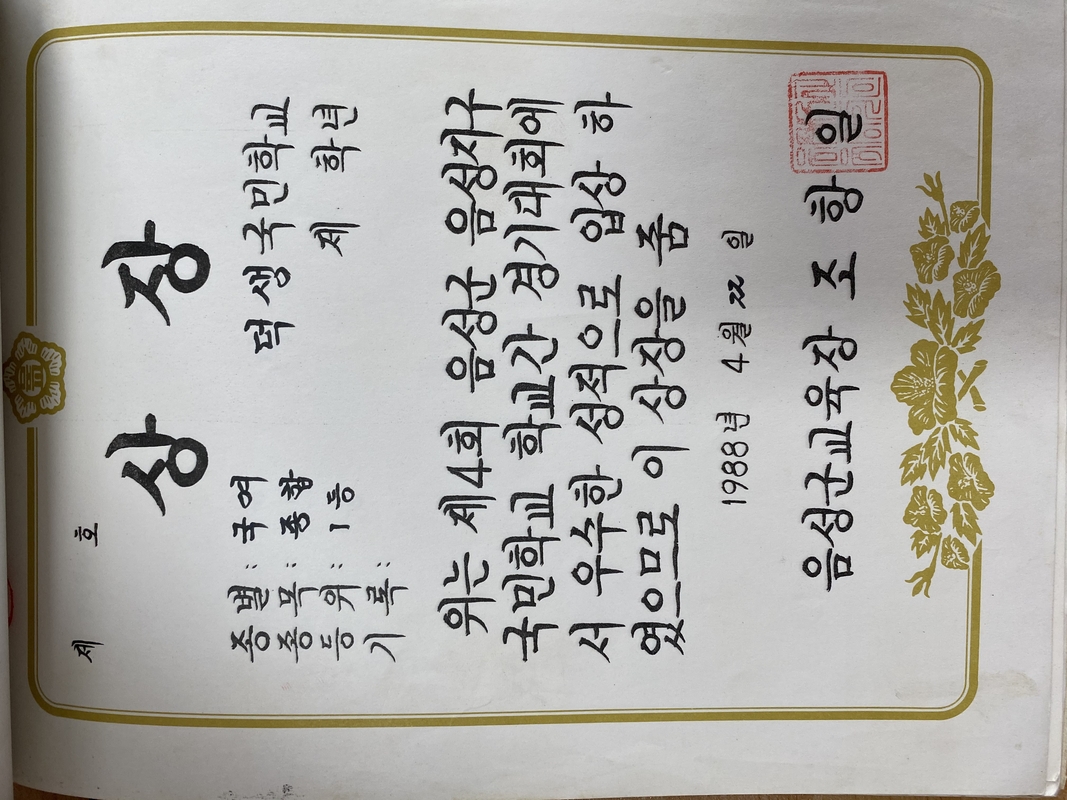 제 호
상 장
종 별: 국여 덕생국민학교
종 목: 종합 제 학년
등 위: 1등
기 록:
위는 제4회 음성군 음성지구
국민학교 학교간 경기대회에
서 우수한 성적으로 입상 하
였으므로 이 상장을 줌
1988년 4월 22일
음성군교육장 조 항 일